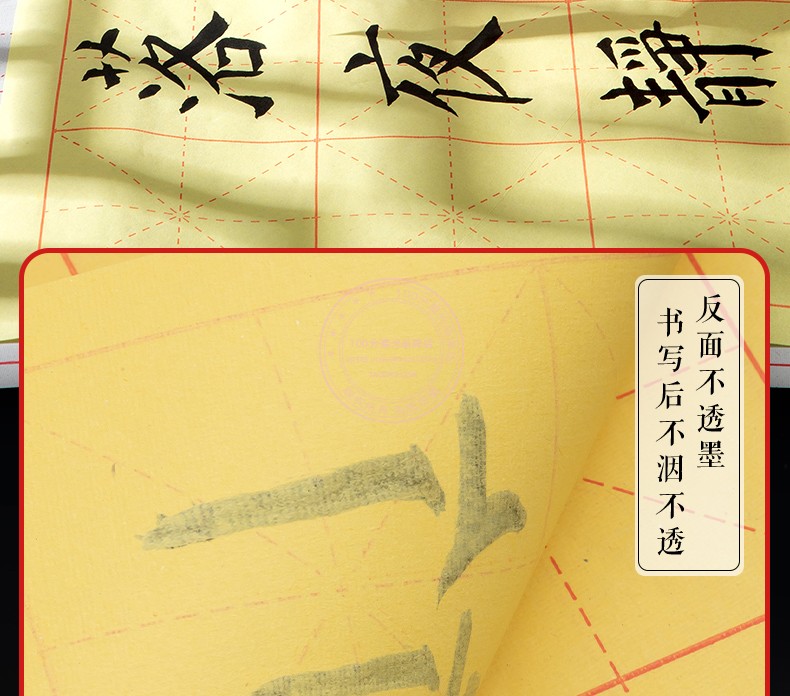 落夜静
反面不透墨
书写后不洇不透